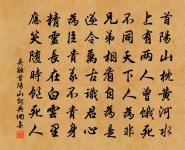 首陽山枕黃河水
上有兩人曾餓死
不同天下人為非
兄弟相看自為是
遂令萬古識君心
為臣貴義不貴身
精靈長在白雲裏
應笑隨時飽死人
吳融首陽山詞典網